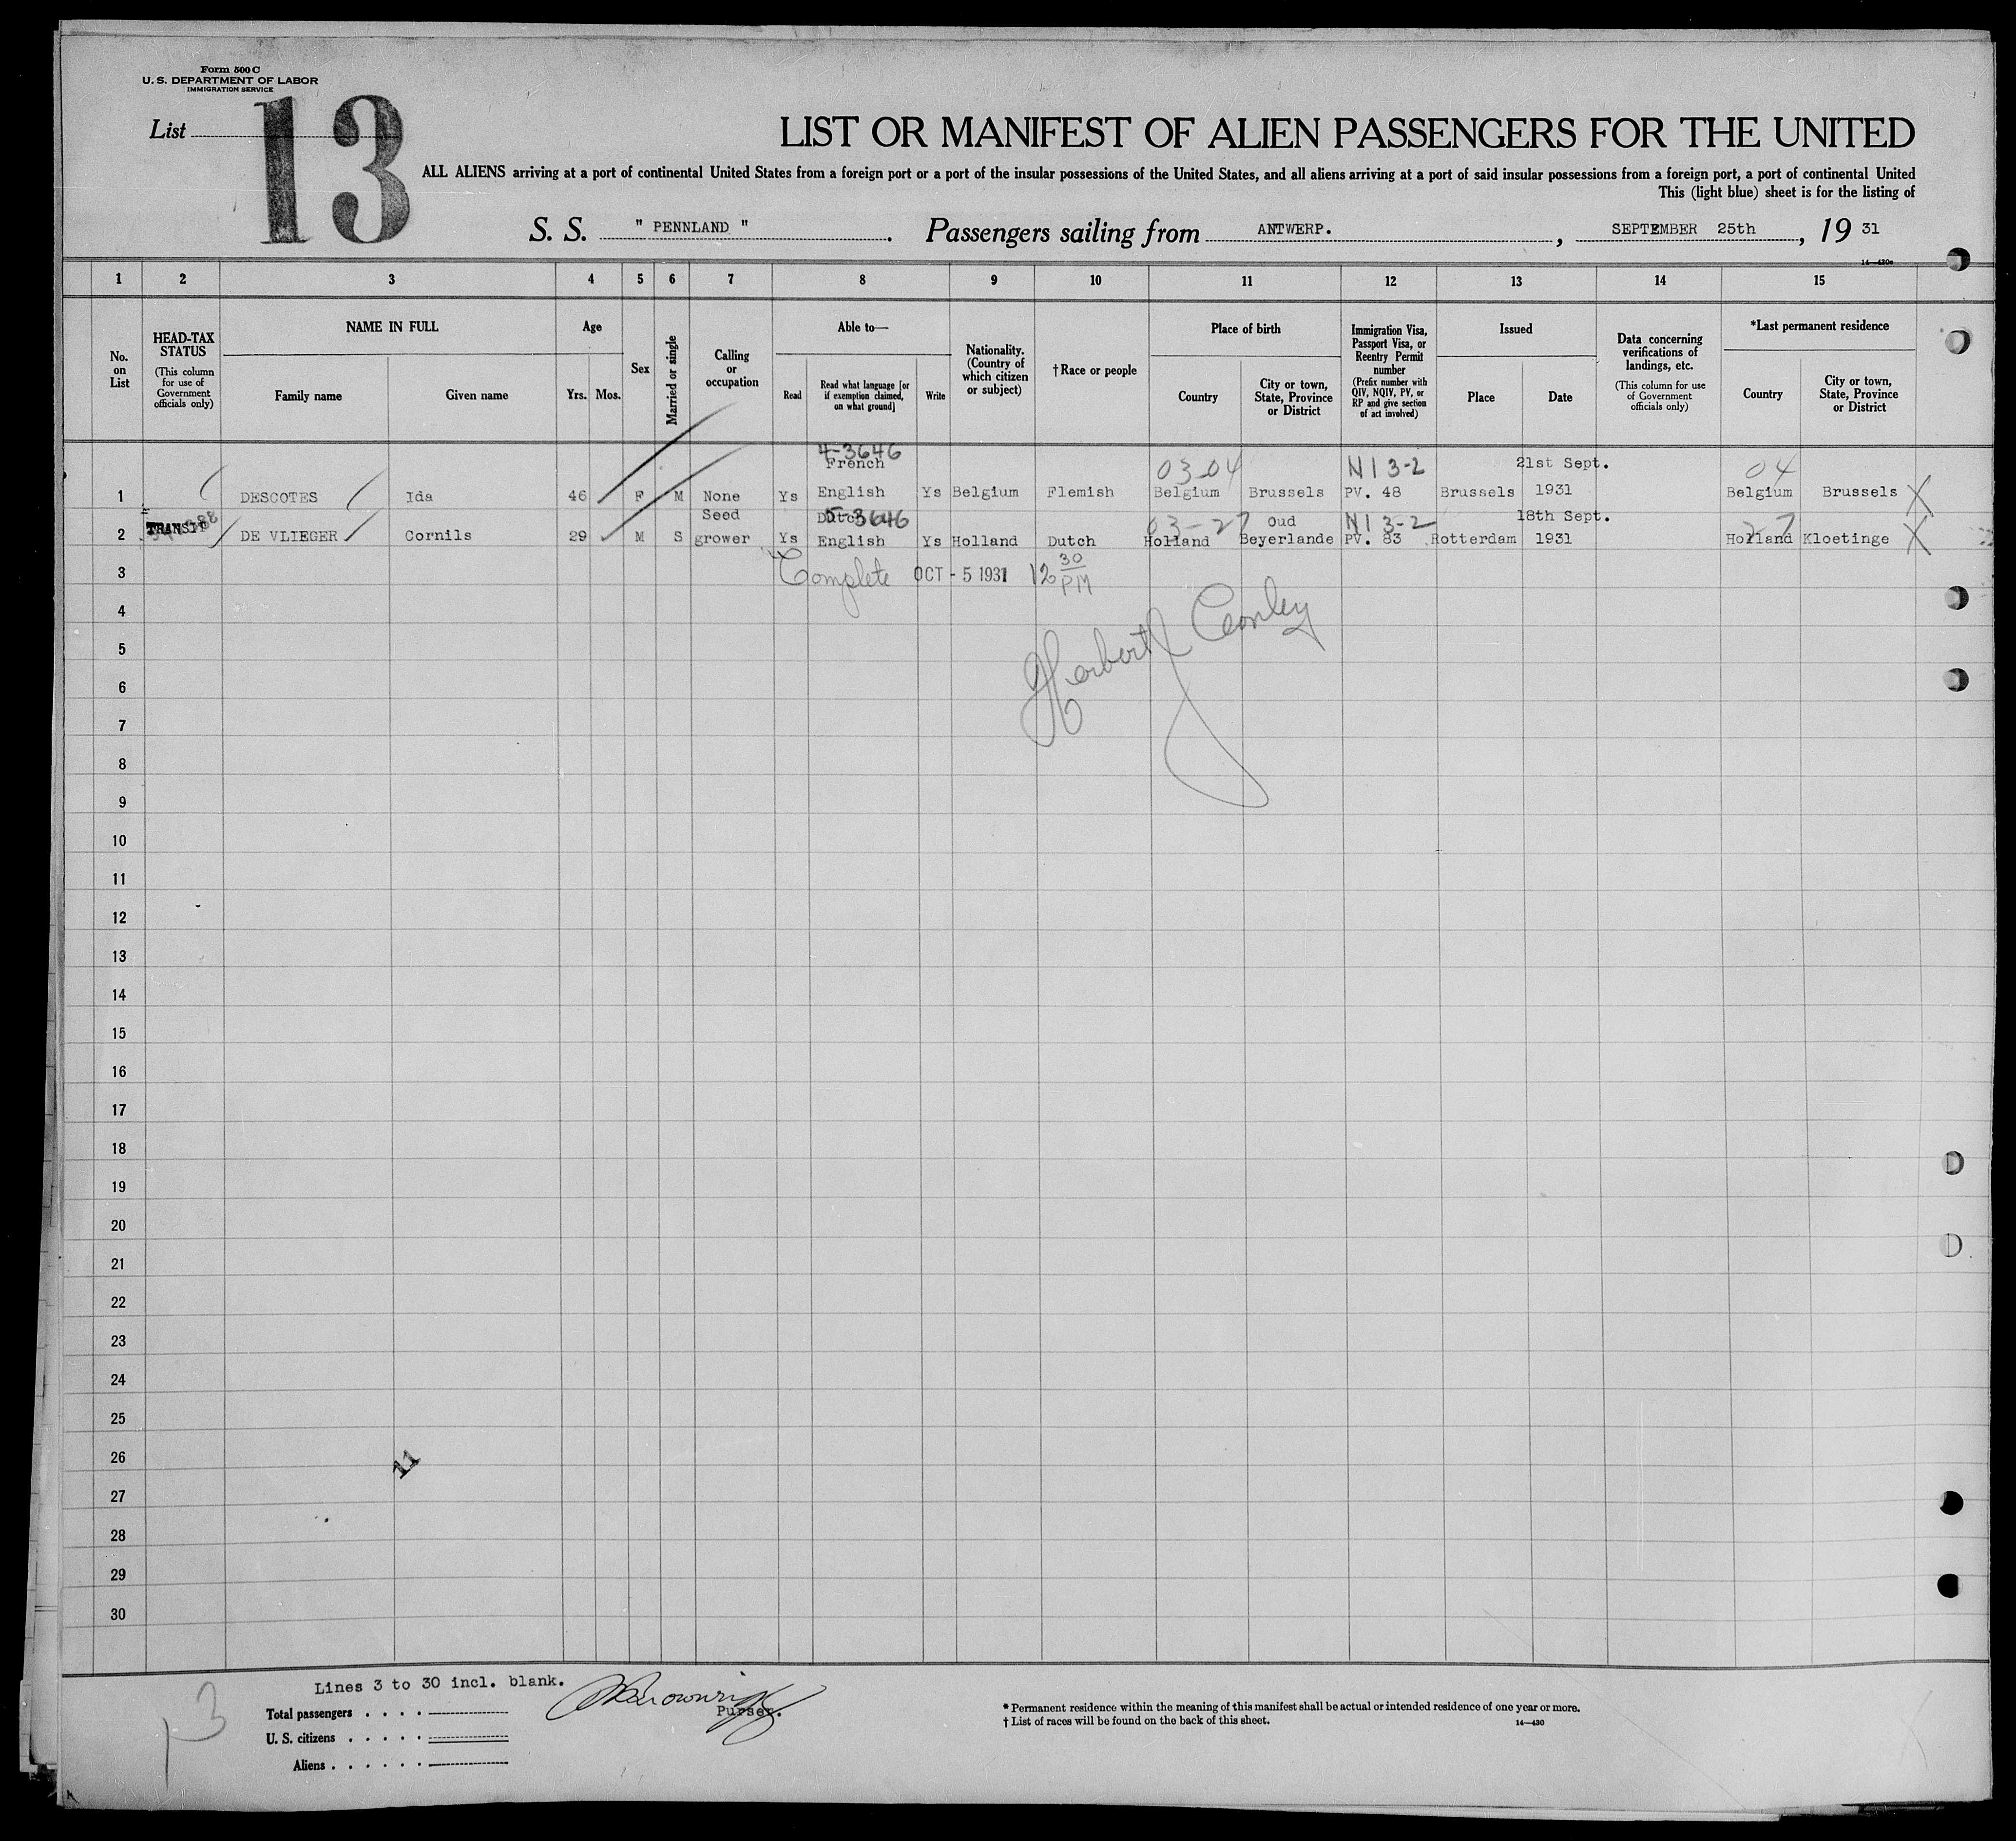 Form 500 C
U. S. DEPARTMENT OF LABOR
IMMIGRATION SERVICE
List 13
LIST OR MANIFEST OF ALIEN PASSENGERS FOR THE UNITED
ALL ALIENS arriving at a port of continental United States from a foreign port or a port of the insular possessions of the United States, and all aliens arriving at a port of said insular possessions from a foreign port, a port of continental United
This (light blue) sheet is for the listing of
S. S. " PENNLAND ". Passengers sailing from ANTWERP. , SEPTEMBER 25th , 19 31
14—430c
1 2 3 4 5 6 7 8 9 10 11 12 13 14 15
No. on List
HEAD-TAX STATUS (This column for use of Government officials only)
NAME IN FULL
Family name
Given name
Age
Yrs.
Mos.
Sex
Married or single
Calling or occupation
Able to—
Read
Read what language [or if exemption claimed, on what ground]
Write
Nationality. (Country of which citizen or subject)
† Race or people
Place of birth
Country
City or town, State, Province or District
Immigration Visa, Passport Visa, or Reentry Permit number (Prefix number with QIV, NQIV, PV, or RP and give section of act involved)
Issued
Place
Date
Data concerning verifications of landings, etc. (This column for use of Government officials only)
*Last permanent residence
Country
City or town, State, Province or District
4-3646 03-04 N I 3-2 04
French 21st Sept.
1 DESCOTES Ida 46 F M None Ys English Ys Belgium Flemish Belgium Brussels PV. 48 Brussels 1931 Belgium Brussels X
Seed Dutch 5-3646 03-27 Oud N I 3-2 18th Sept. 27
2 TRANSIT DE VLIEGER Cornils 29 M S grower Ys English Ys Holland Dutch Holland Beyerlande PV. 83 Rotterdam 1931 Holland Kloetinge X
3 Complete OCT - 5 1931 12 30 PM
4
Herbert J Conley
5
6
7
8
9
10
11
12
13
14
15
16
17
18
19
20
21
22
23
24
25
26
11
27
28
29
30
Lines 3 to 30 incl. blank.
13
Total passengers . . . .
Purser.
U. S. citizens . . . . .
Aliens . . . . . .
* Permanent residence within the meaning of this manifest shall be actual or intended residence of one year or more.
† List of races will be found on the back of this sheet.
14—430